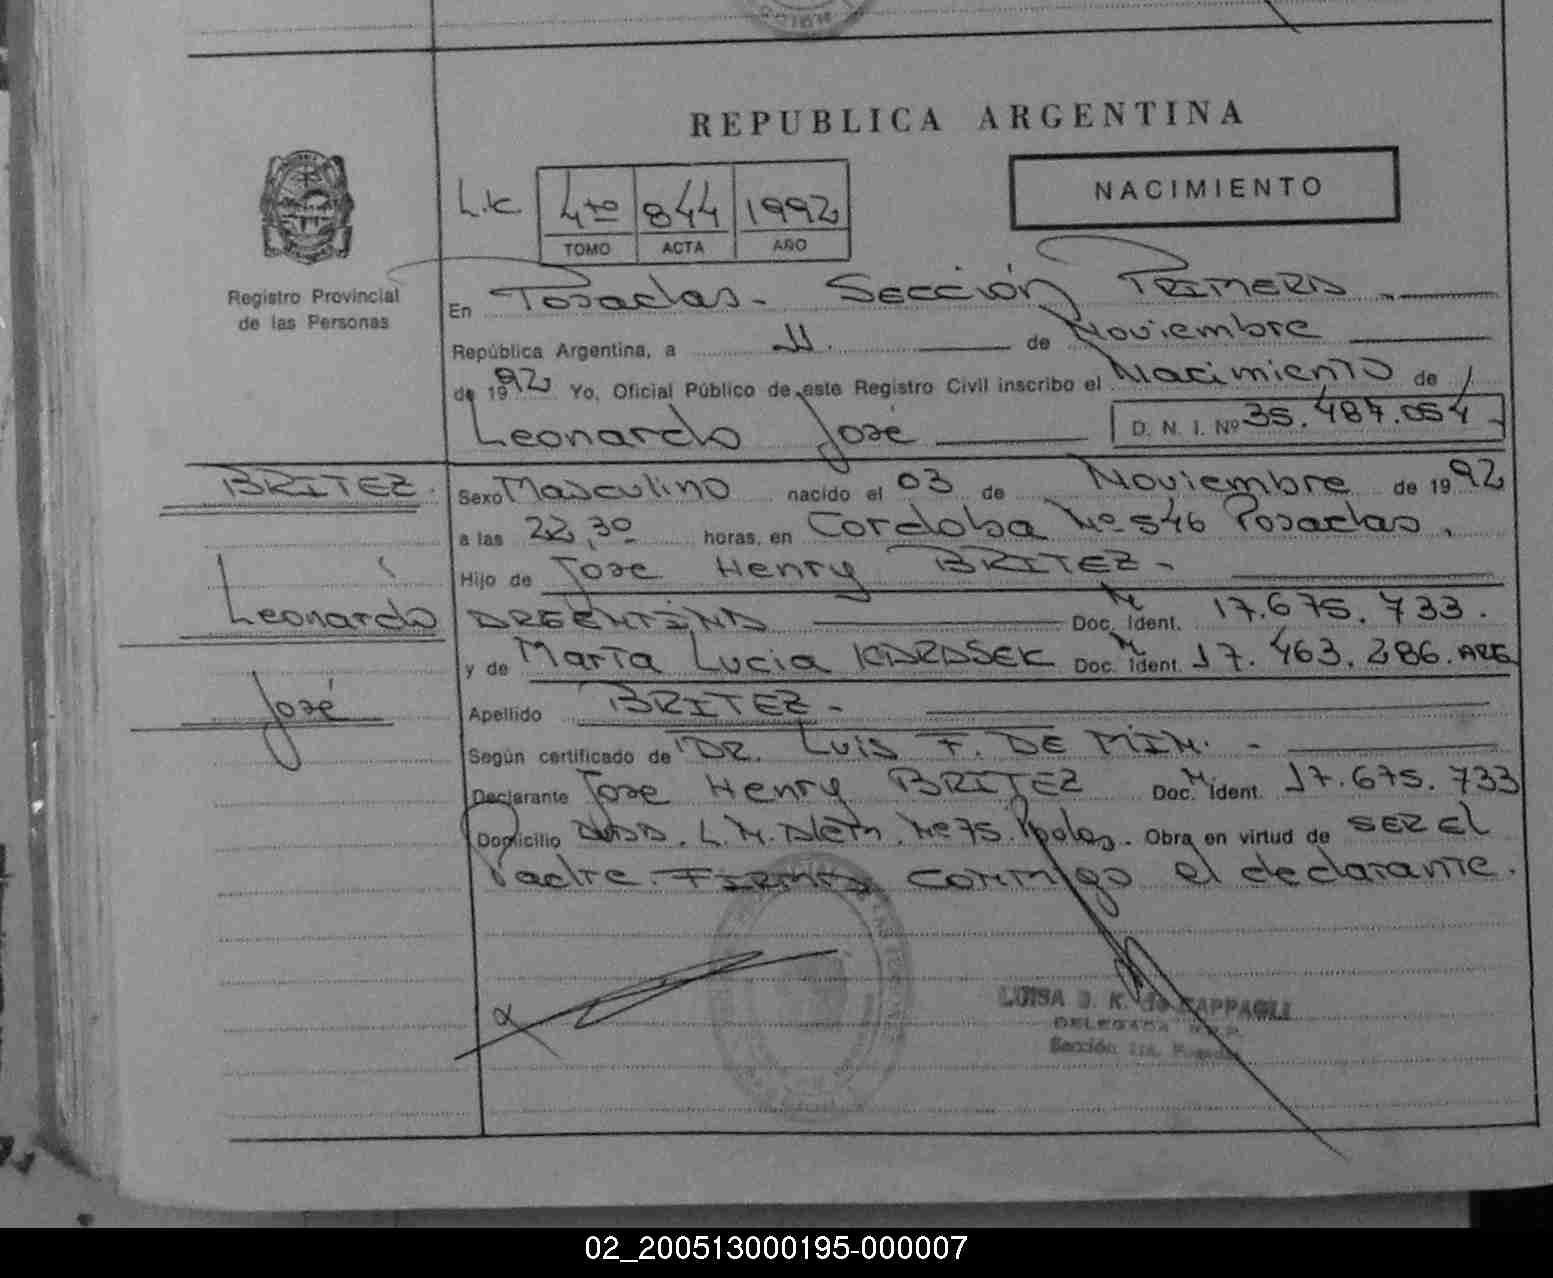 REPUBLICA ARGENTINA
NACIMIENTO
4to 844 1992
TOMO ACTA AÑO
Registro Provincial
de las Personas
En Posadas - Sección Primera
República Argentina, a 11 de Noviembre
de 1992 Yo, Oficial Público de este Registro Civil inscribo el Nacimiento de
Leonardo José D. N. I. Nº 35.487.054
BRITEZ
Sexo Masculino nacido el 03 de Noviembre de 1992
a las 22,30 horas, en Cordoba Nº 546 Posadas.
Hijo de Jose Henry BRITEZ -
Leonardo
ARGENTINA Doc. M Ident. 17.675.733.
y de Marta Lucia KARASEK Doc. M Ident. 17.463.286. ARG
José
Apellido BRITEZ -
Según certificado de DR. Luis F. DE MIN. -
Declarante Jose Henry BRITEZ Doc. M Ident. 17.675.733
Domicilio L.N. Alem. Nº 75. Obra en virtud de SER El
Padre. FIRMA conmigo el declarante.
LUISA K. de ZAPPAGLI
DELEGADA
Sección 1ra.
02_200513000195-000007